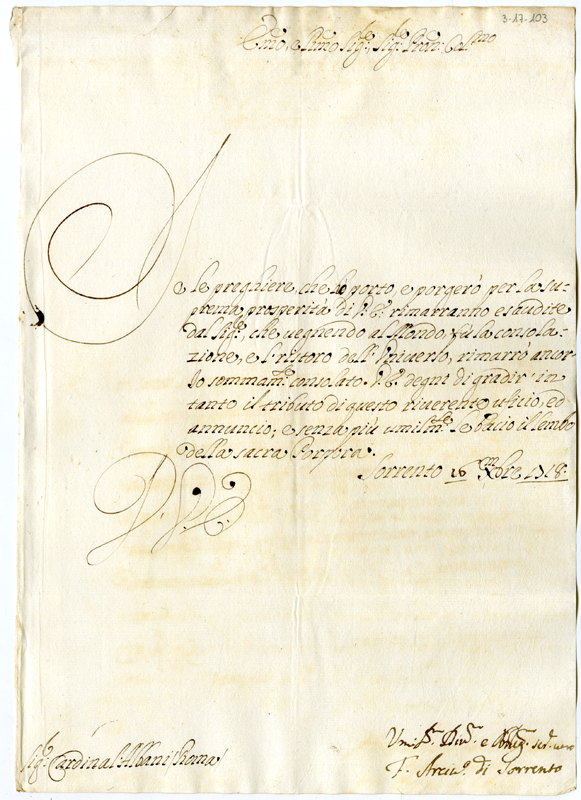 3-17-103
Emo, e Rmo Sig.r, Sig.r Pron. Col.mo
Se le preghiere, che io porto, e porgerò per la su-
prema prosperità di V.E. rimarranno esaudite
dal Sig.re, che uegnendo al Mondo, fù la consola-
zione, e l'ristoro dell'Vniuerso, rimarrò ancor'
Io sommam.te consolato. V.E. degni di gradir' in
tanto il tributo di questo riuerente uficio, ed
annuncio; e senza più umilm.te Le bacio il lembo
della sacra Porpora.
Sorrento 16 Xmbre 1718.
D. V. E.
Sig.r Cardinal Albani Roma
Vmi.o Diu.mo e Obblig.mo ser.
F. Arciu.o di Sorrento